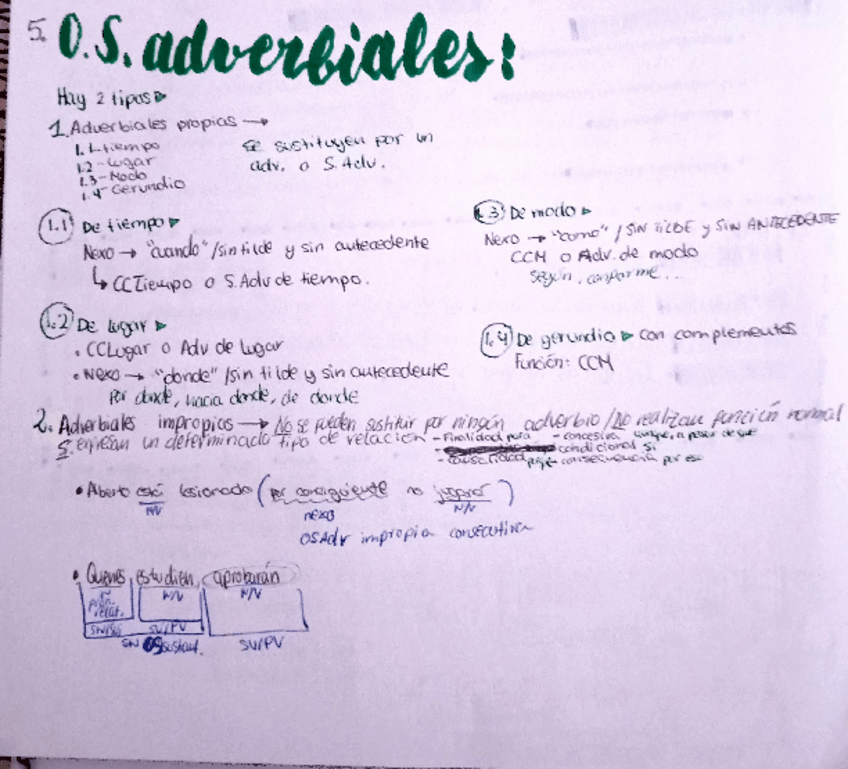 5. O.S. adverbiales:
Hay 2 tipos
1. Adverbiales propias →
1.1-tiempo
1.2-Lugar
1.3-Modo
1.4-Gerundio
se sustituyen por un
adv. o S. Adv.
1.1 De tiempo
Nexo → "cuando" / sin tilde y sin antecedente
↳ CCTiempo o S. Adv de tiempo.
1.2 De lugar
• CCLugar o Adv de lugar
• Nexo → "donde" / sin tilde y sin antecedente
Por donde, hacia donde, de donde
1.3 De modo
Nexo → "como" / SIN TILDE y SIN ANTECEDENTE
CCM o Adv. de modo
Según, conforme...
1.4 De gerundio con complementos
Función: CCM
2. Adverbiales impropias → No se pueden sustituir por ningún adverbio / No realizan función normal
S. expresan un determinado tipo de relación - Finalidad para - concesiva aunque, a pesar de que
condicional si
- causalidad porque consecuencia por eso
• Alberto está lesionado (por consiguiente no jugará)
N/V nexo N/V
OSAdv impropia consecutiva
• Quienes estudien, aprobarán
N N/V N/V
relat.
SN/Suj SV/PV
SN OSSustant. SV/PV